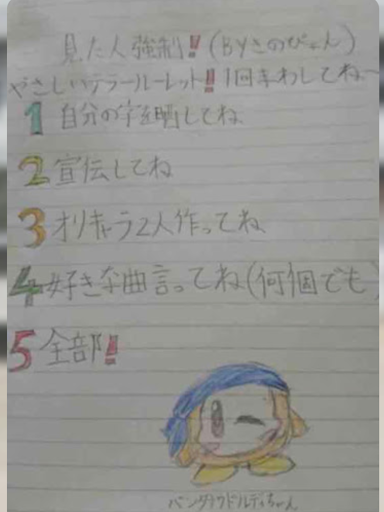 見た人強制!!(BYきのぴょん)
やさしいテラールーレット!!1回まわしてね~
1 自分の字を晒してね
2 宣伝してね
3 オリキャラ2人作ってね
4 好きな曲言ってね(何個でも)
5 全部!!
バンダナワドルディちゃん